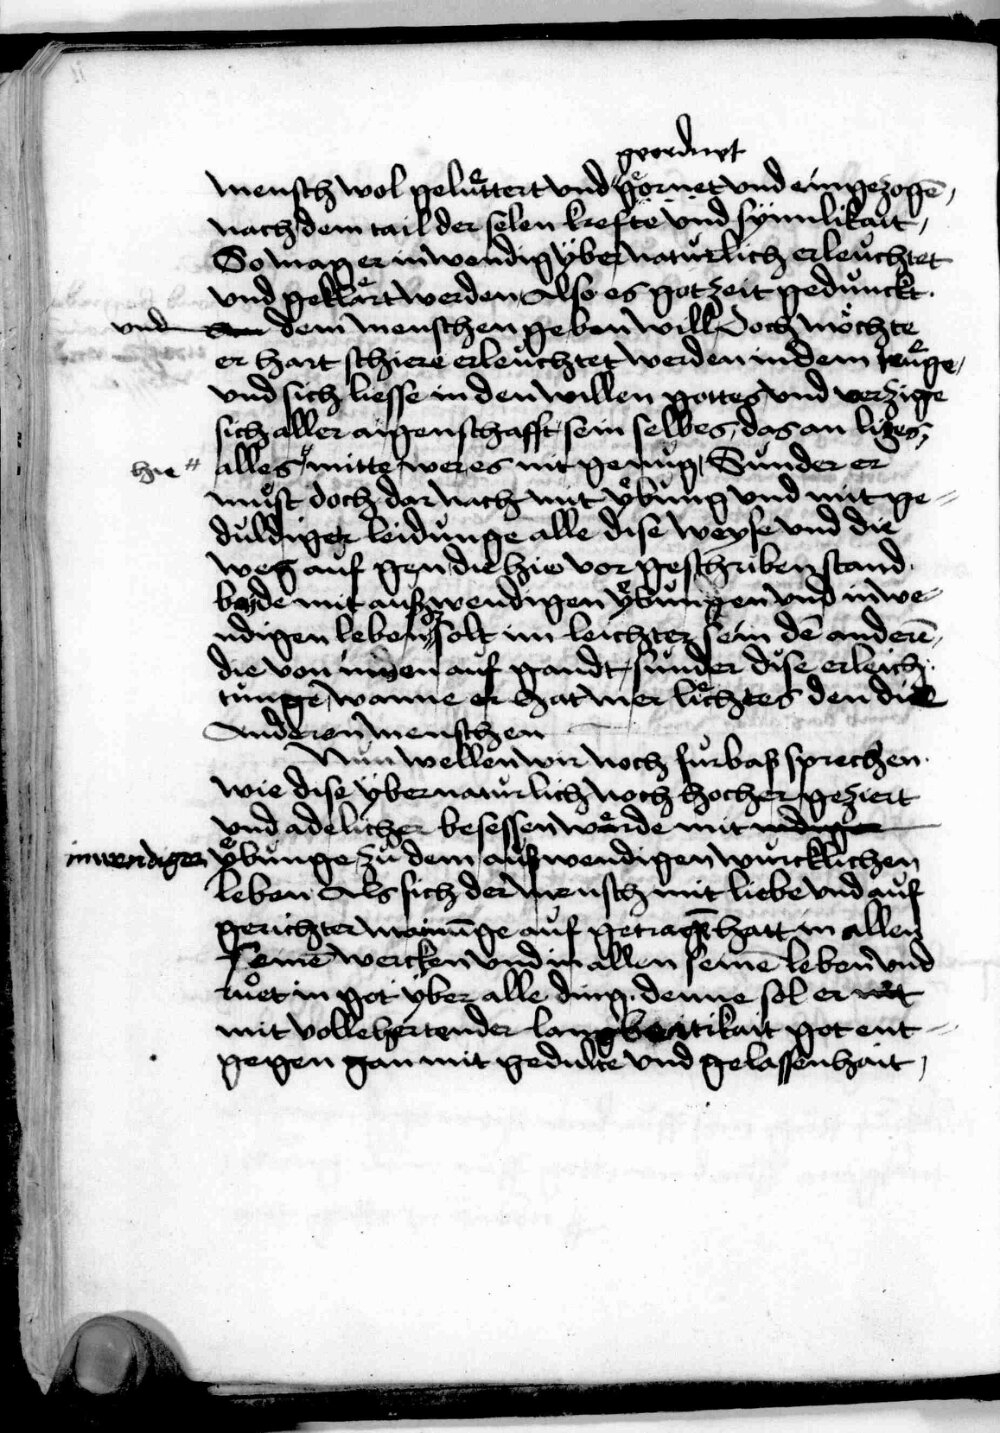 geordnet
mensch wol gelúttert vnd gornet vnd eingezogē,
nach dem tail der selen krefte vnd synnlikait,
So mag er inwendig ýbernatúrlich erleúchtet
vnd geklärt werden Also es got zeit gedunckt.
vnd dem menschen geben will Doch möchte
er hart schiere erleúchtet werden in dem
vnd sich liesse in den willen gottes vnd verzige
sich aller aigenschafft sein selbes, das an
hie alles mitte wer es nit genúg, Súnder er
múst doch dar nach mit ýbung vnd mit ge-
dúldiger leidúnge alle dise weyse vnd die
weg auf gen die hie vor geschriben stand.
beyde mit auswendigen ýbungen vnd inwe-
ndigen leben, es solt im leichter sein dē anderē,
die von innen auf gandt, súnder dise erleich-
túngē, wanne er hat mer liechtes den die
Anderen menschen
Nún wellen wir noch fúrbas sprechen.
wie dise ýbernatúrlich noch hocher geziert
vnd adelicher besessen wérde mit
inwendigen ýbúnge zú dem auswendigen wúrcklichen
leben Als sich der mensch mit liebe vnd auf
gerichter mainūge auf getragē hatt in allen
seinē wercken vnd in allen seinē leben vnd
rúet in got ýber alle ding. denne sol er
mit vollehertender got ent-
gegen gan mit gedulte vnd gelassenhait,